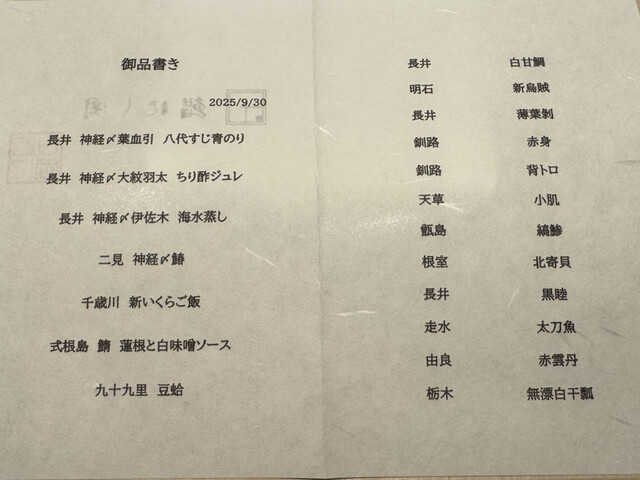 御品書き
2025/9/30
長井 神経〆葉血引 八代すじ青のり
長井 神経〆大紋羽太 ちり酢ジュレ
長井 神経〆伊佐木 海水蒸し
二見 神経〆鰆
千歳川 新いくらご飯
式根島 鯖 蓮根と白味噌ソース
九十九里 豆蛤
長井 白甘鯛
明石 新烏賊
長井 薄葉剝
釧路 赤身
釧路 背トロ
天草 小肌
甑島 縞鯵
根室 北寄貝
長井 黒睦
走水 太刀魚
由良 赤雲丹
栃木 無漂白干瓢